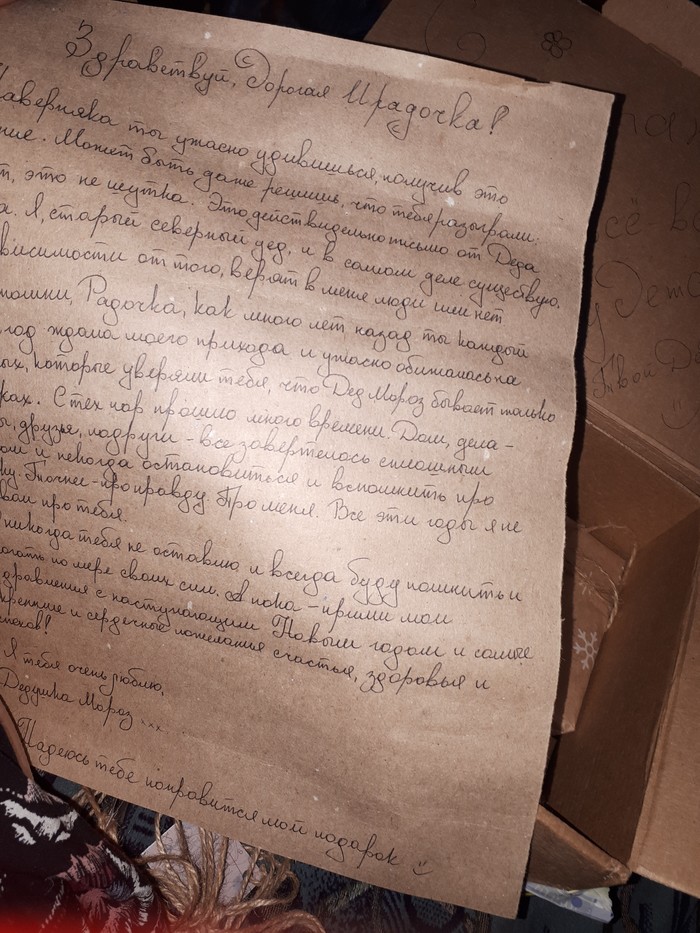 Здравствуй, Дорогая Ирадочка!
Наверняка ты ужасно удивишься, получив это
ние. Может быть даже решишь, что тебя разыграли:
т, это не шутка. Это действидельно письмо от Деда
а. Я, старый северный дед, и в самом деле существую,
висимости от того, верят в меня люди или нет
помни, Радочка, как много лет назад ты каждый
год ждала моего прихода и ужасно обижалась на
ых, которые уверяли тебя, что Дед Мороз бывает только
ках. С тех пор прошло много времени. Дом, дела -
ы, друзья, подруги - все завертелось сплошным
ом и некогда остановиться и вспомнить про
ку. Точнее - про правду. Про меня. Все эти годы я не
вал про тебя.
никогда тебя не оставлю и всегда буду помнить и
огать по мере своих сил. А пока - прими мои
дравления с наступающим Новым годом и самые
кренние и сердечные пожелания счастья, здоровья и
спехов!
Я тебя очень люблю,
Дедушка Мороз ...
Надеюсь тебе понравится мой подарок :)
всё в
у Дет
Твой Д
:)